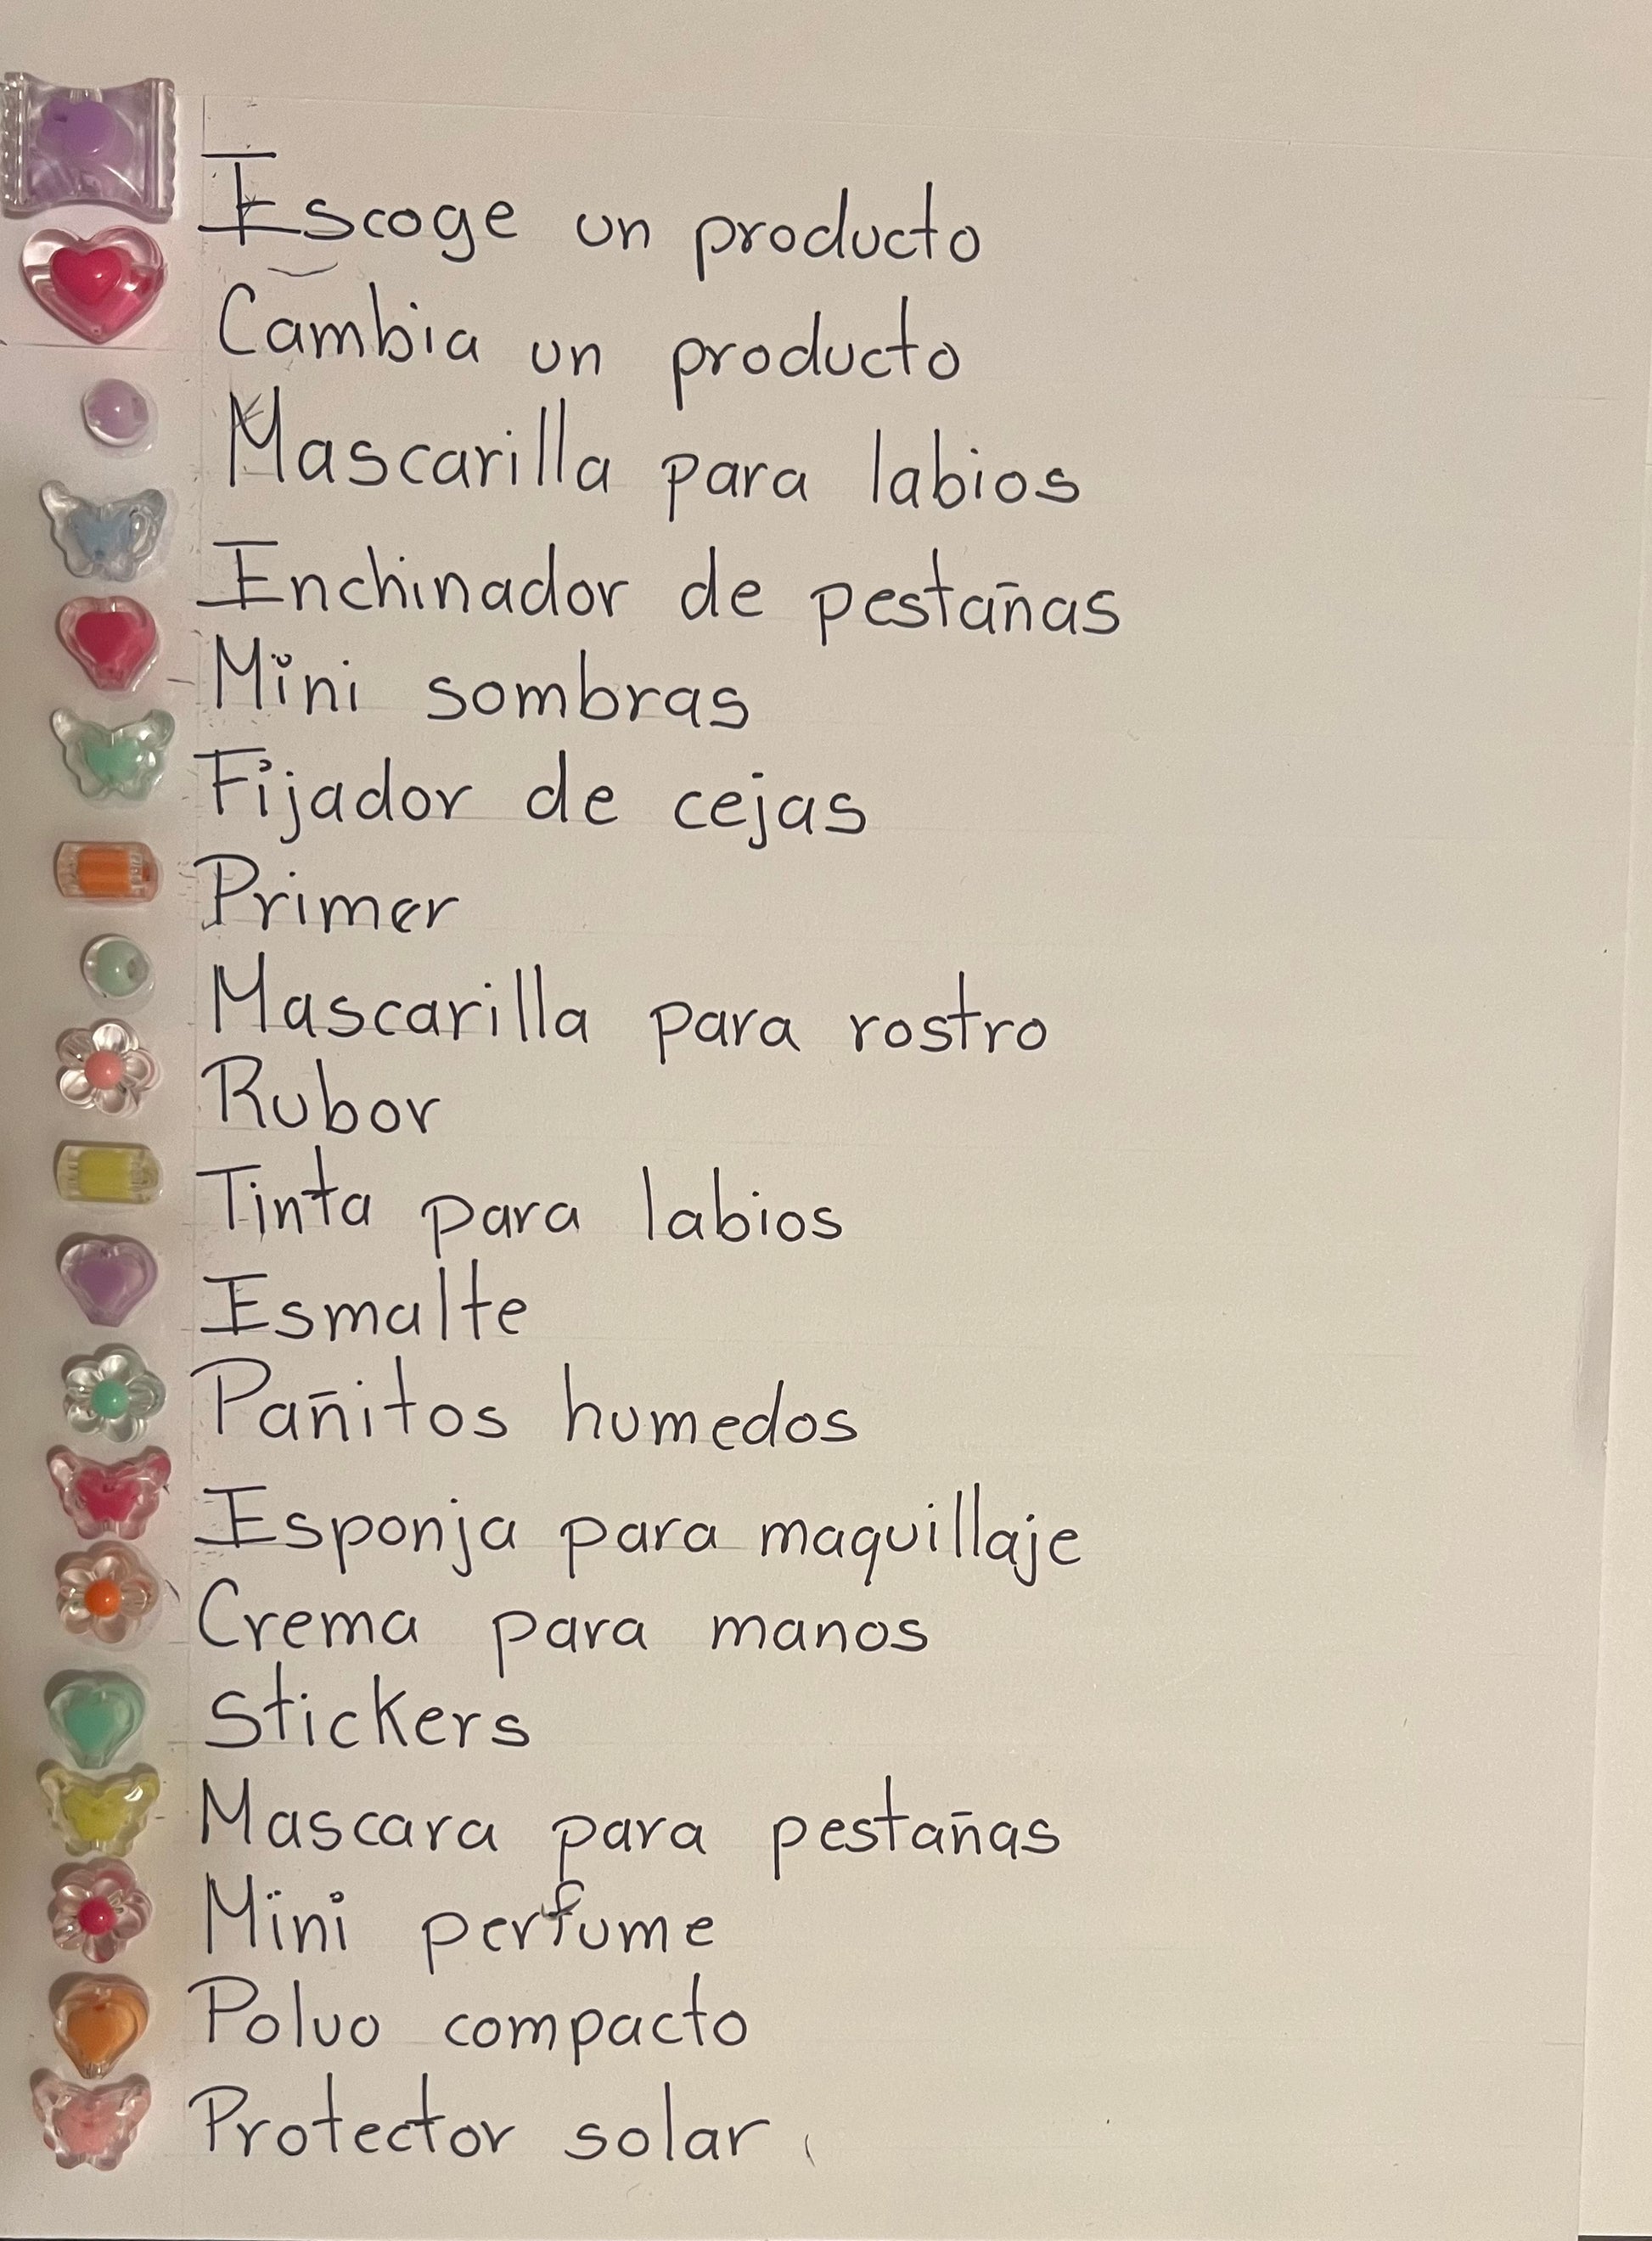 Escoge un producto
Cambia un producto
Mascarilla para labios
Enchinador de pestañas
Mini sombras
Fijador de cejas
Primer
Mascarilla para rostro
Rubor
Tinta para labios
Esmalte
Pañitos humedos
Esponja para maquillaje
Crema para manos
Stickers
Mascara para pestañas
Mini perfume
Polvo compacto
Protector solar